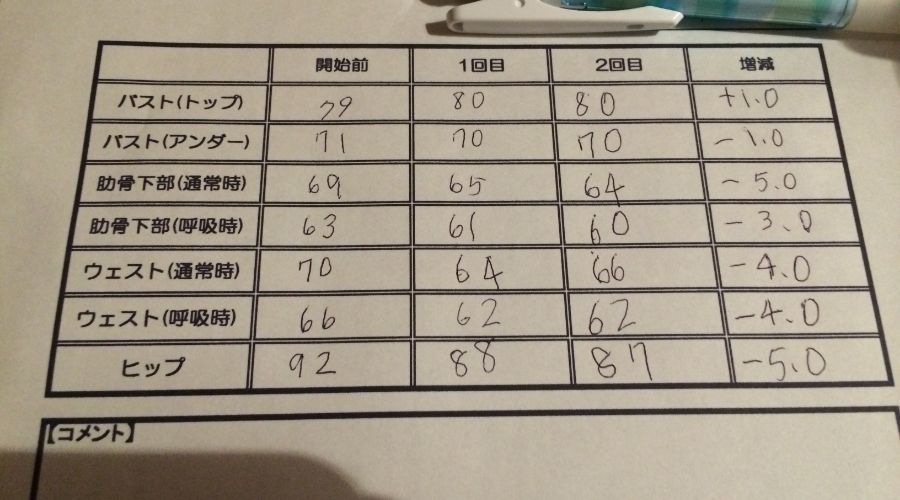 開始前 1回目 2回目 増減
バスト(トップ) 79 80 80 +1.0
バスト(アンダー) 71 70 70 -1.0
肋骨下部(通常時) 69 65 64 -5.0
肋骨下部(呼吸時) 63 61 60 -3.0
ウェスト(通常時) 70 64 66 -4.0
ウェスト(呼吸時) 66 62 62 -4.0
ヒップ 92 88 87 -5.0
【コメント】